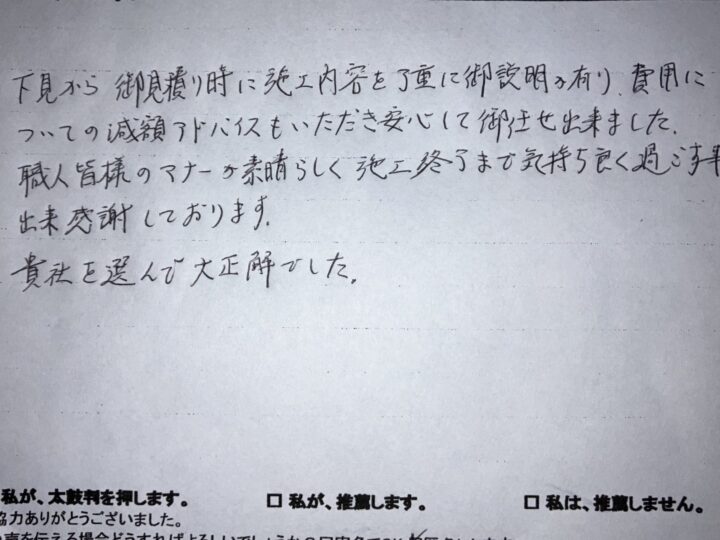 下見から御見積り時に施工内容を丁重に御説明が有り、費用に
ついての減額アドバイスもいただき安心して御任せ出来ました。
職人皆様のマナーが素晴らしく施工終了まで気持ち良く過ごす事
出来感謝しております。
貴社を選んで大正解でした。
私が、太鼓判を押します。 □ 私が、推薦します。 □ 私は、推薦しません。
協力ありがとうございました。